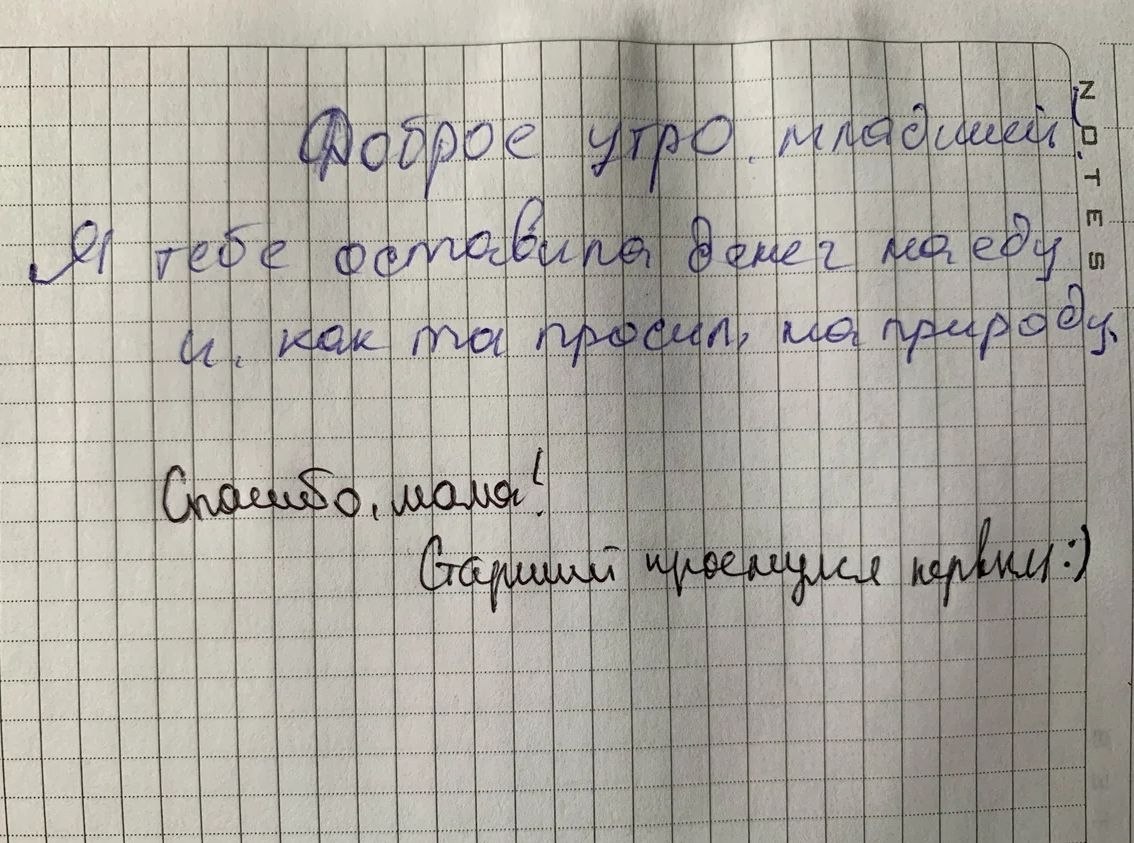 Доброе утро, младший!
Я тебе оставила денег на еду
и, как ты просил, на природу.
Спасибо, мама!
Старший проснулся первым :)
NOTES